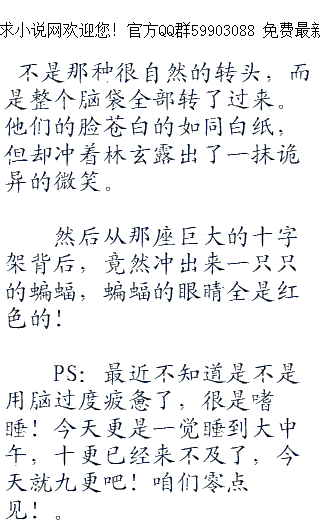 求小说网欢迎您！官方QQ群59903088 免费最新
不是那种很自然的转头，而
是整个脑袋全部转了过来。
他们的脸苍白的如同白纸，
但却冲着林玄露出了一抹诡
异的微笑。
然后从那座巨大的十字
架背后，竟然冲出来一只只
的蝙蝠，蝙蝠的眼睛全是红
色的！
PS：最近不知道是不是
用脑过度疲惫了，很是嗜
睡！今天更是一觉睡到大中
午，十更已经来不及了，今
天就九更吧！咱们零点
见！。